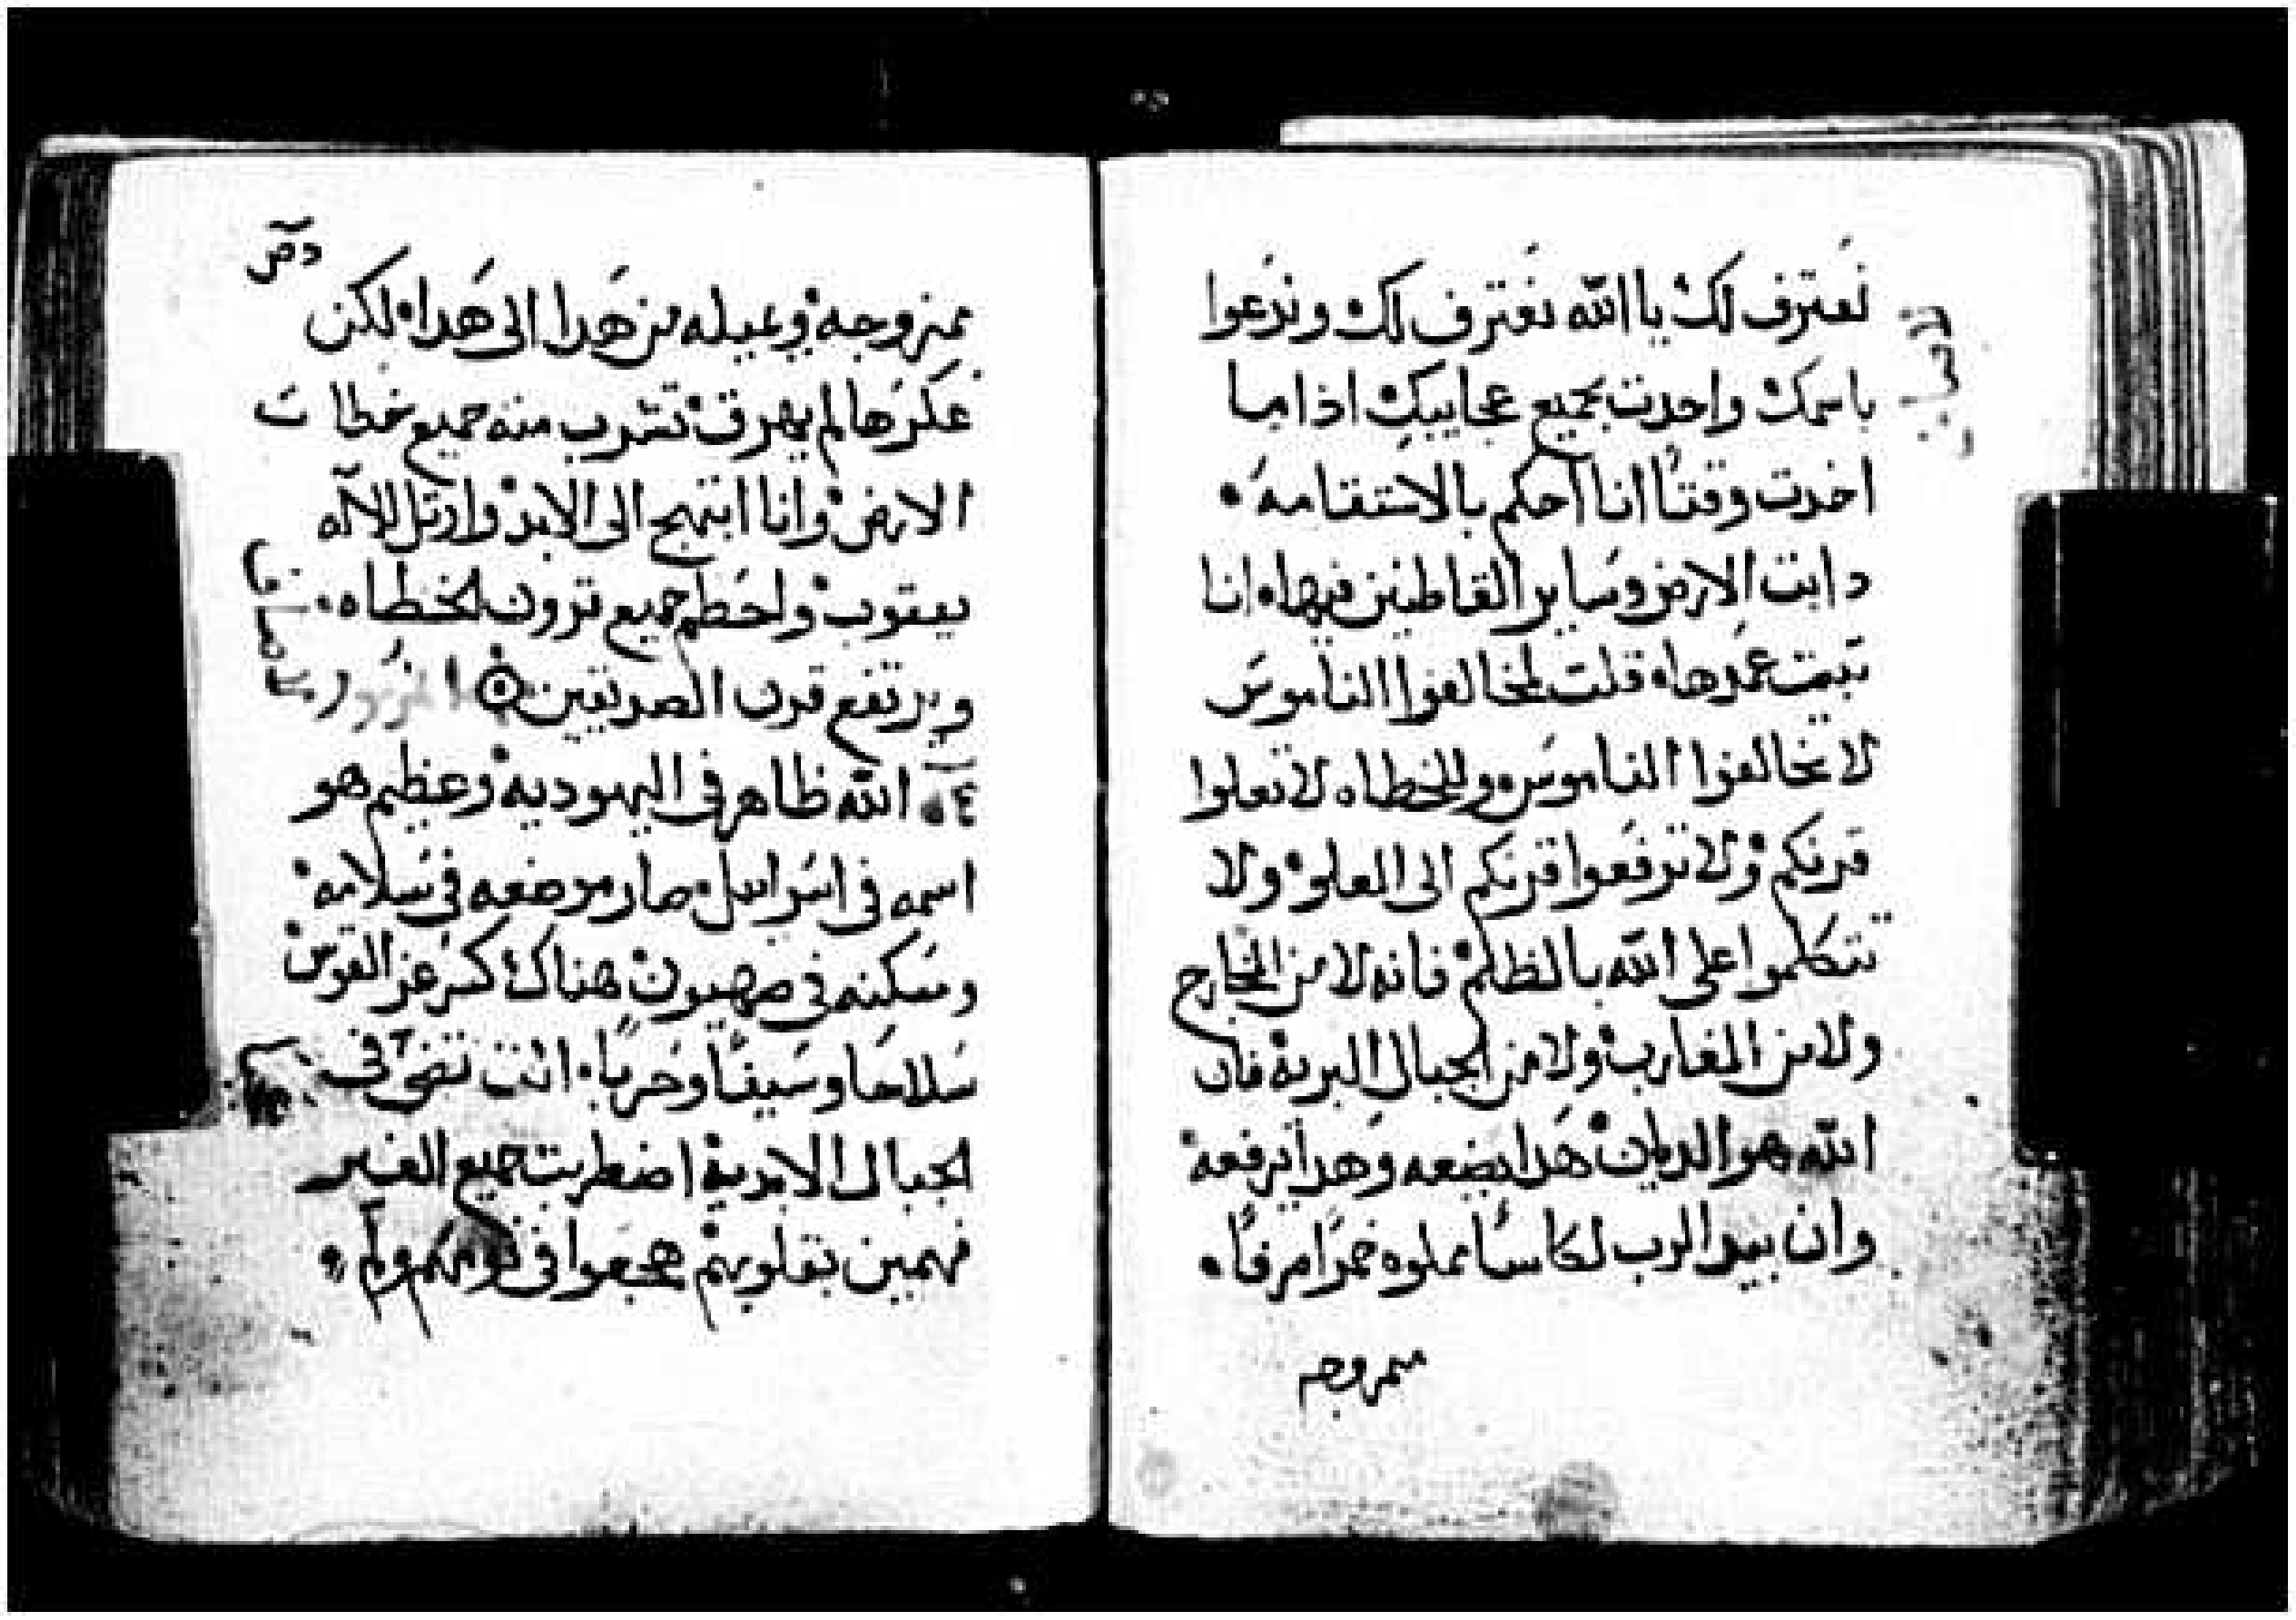 نعترف لك يا الله نعترف لك وندعوا
باسمك واحدت بجميع عجايبك اذا ما
اخدت وقتًا انا احكم بالاستقامه •
دابت الارض وساير القاطنين فيها • انا
تبتت عمدها • قلت لمخالفوا الناموس
لا تخالفوا الناموس • وللخطاه لا تعلوا
قرنكم ولا ترفعوا قرنكم الى العلو ولا
تتكلموا على الله بالظلم فانه لا من الخارج
ولا من المغارب ولا من الجبال البريه فان
الله هو الديان هدا يضعه وهدا يرفعه
وان بيد الرب لكاسًا مملوه خمرًا صرفًا •
ممزوجه
ممزوجه ويميله من هدا الى هدا • لكن
عكرها لم يهرق تشرب منه جميع خطات
الارض وانا ابتهج الى الابد وارتل لالاه
يعقوب واحطم جميع قرون الخطاه •
ويرتفع قرن الصديقين
الله ظاهر في اليهوديه وعظيم هو
اسمه في اسراييل • صار موضعه في سلامه
وسكنه في صهيون هناك كسر عز القوس
سلاحا وسيفًا وحربًا • انت تضى في
الجبال الابديه اضطربت جميع الغير
فهمين بقلوبهم هجعوا في نومهم ولم •